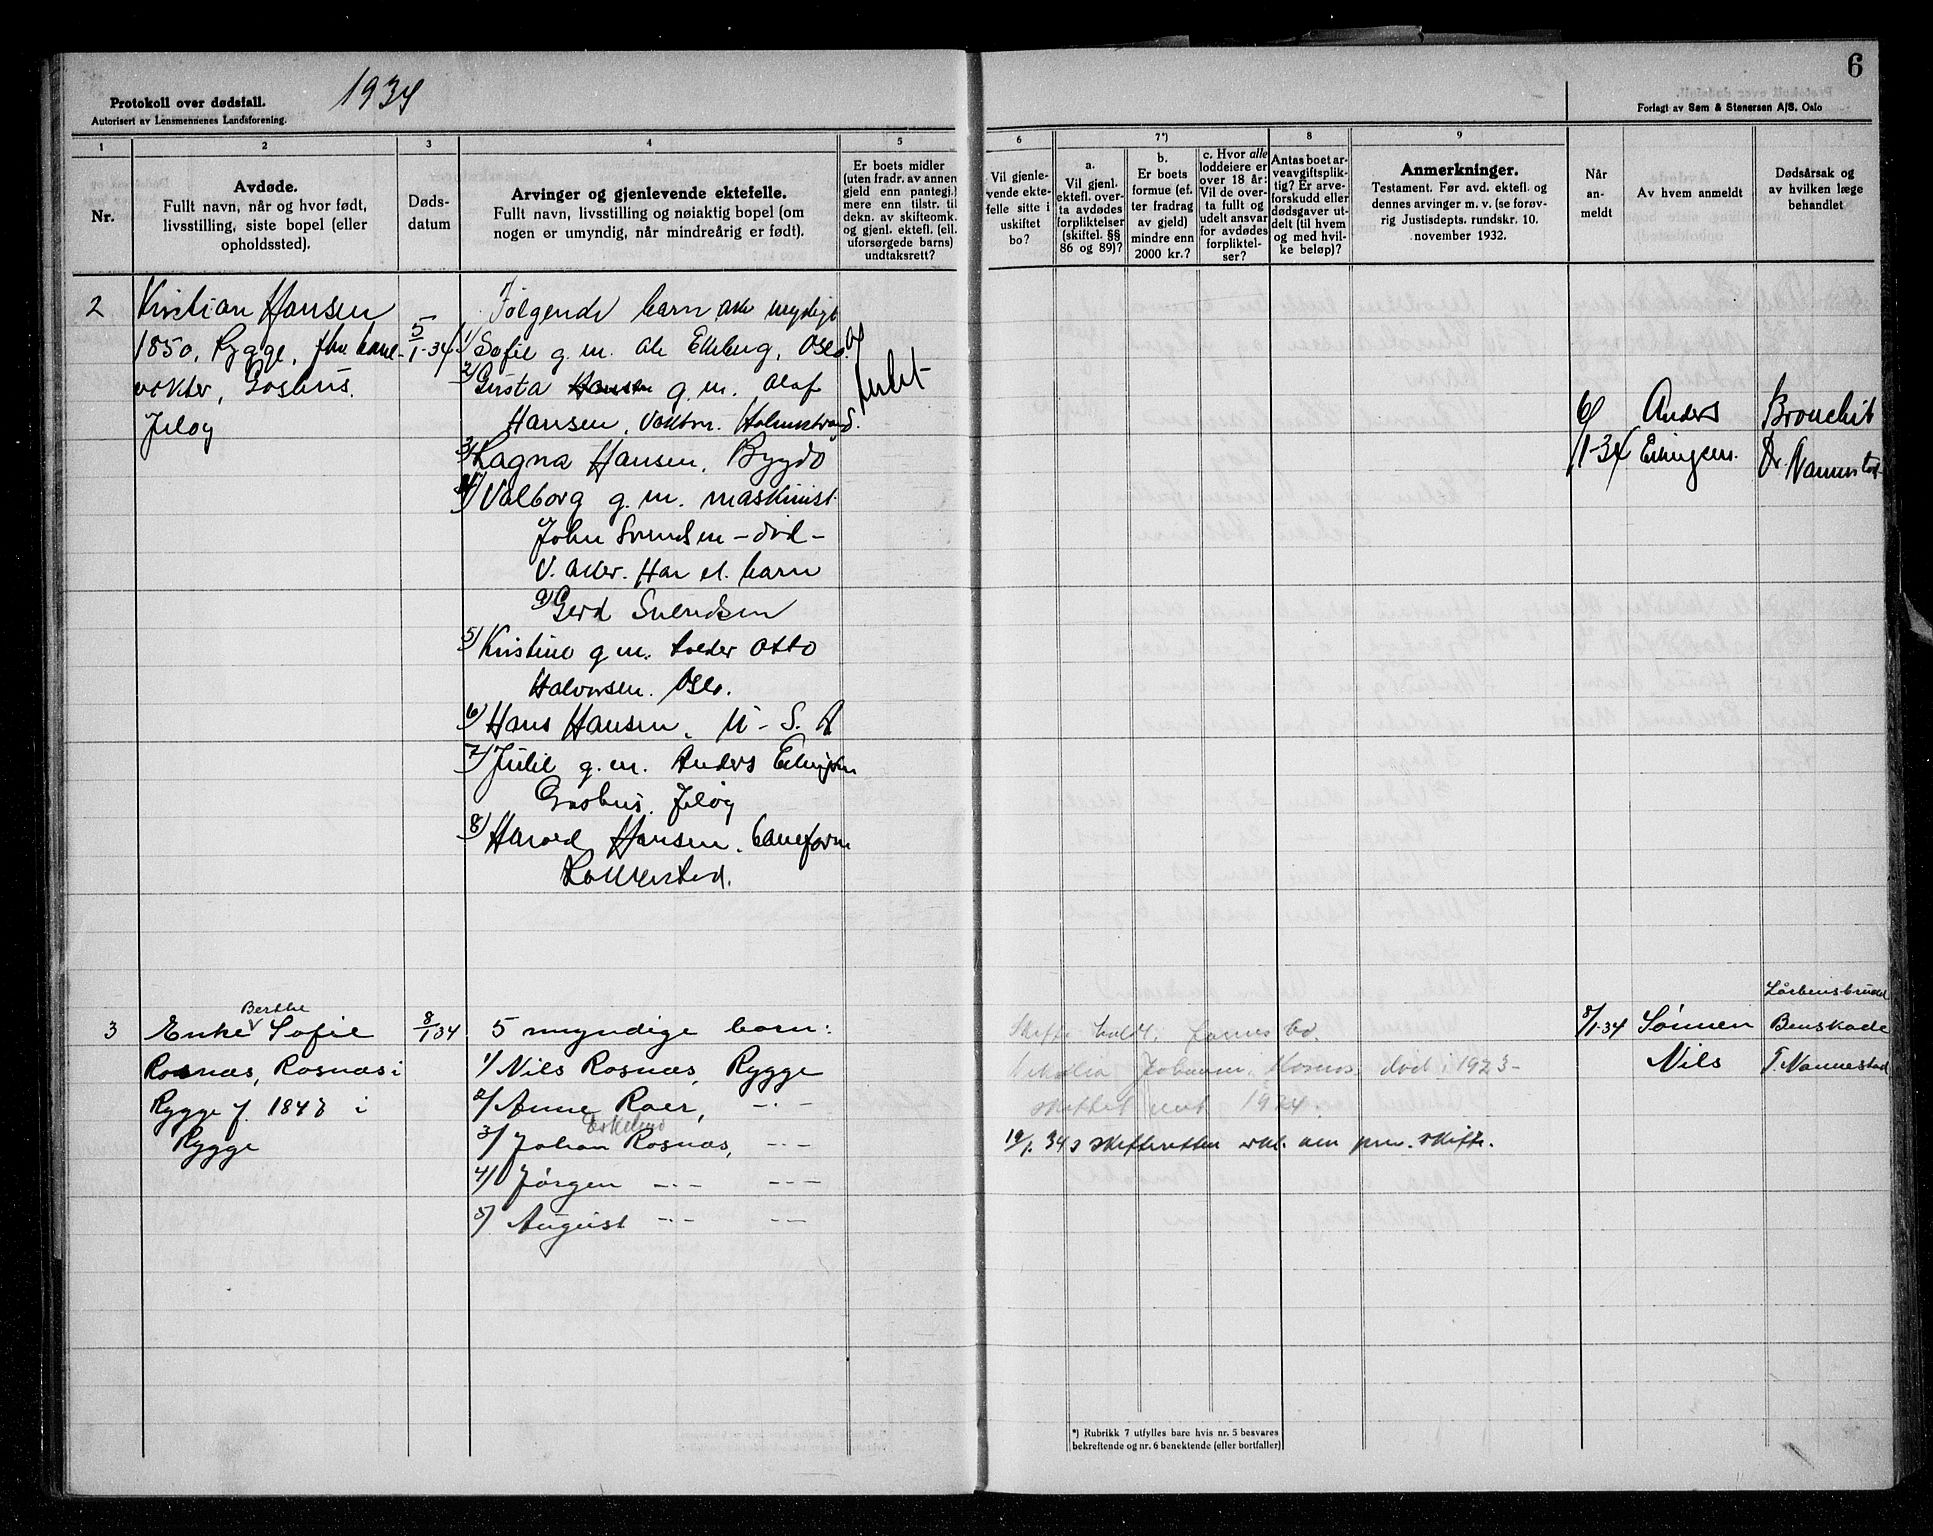 Protokoll over dødsfall.
Autorisert av Lensmennenes Landsforening.
1934
6
Forlagt av Sem & Stenersen A/S, Oslo
1
Nr.
2
Avdøde.
Fullt navn, når og hvor født,
livsstilling, siste bopel (eller
opholdssted).
3
Døds-
datum
4
Arvinger og gjenlevende ektefelle.
Fullt navn, livsstilling og nøiaktig bopel (om
nogen er umyndig, når mindreårig er født).
5
Er boets midler
(uten fradr. av annen
gjeld enn pantegj.)
mere enn tilstr. til
dekn. av skifteomk.
og gjenl. ektefl. (ell.
uforsørgede barns)
undtaksrett?
6
Vil gjenle-
vende ekte-
felle sitte i
uskiftet
bo?
7*)
a.
Vil gjenl.
ektefl. over-
ta avdødes
forpliktelser
(skiftel. §§
86 og 89)?
b.
Er boets
formue (ef-
ter fradrag
av gjeld)
mindre enn
2000 kr.?
c. Hvor alle
loddeiere er
over 18 år:
Vil de over-
ta fullt og
udelt ansvar
for avdødes
forpliktel-
ser?
8
Antas boet ar-
veavgiftsplik-
tig? Er arve-
forskudd eller
dødsgaver ut-
delt (til hvem
og med hvil-
ke beløp)?
9
Anmerkninger.
Testament. Før avd. ektefl. og
dennes arvinger m. v. (se forøv-
rig Justisdepts. rundskr. 10.
november 1932.
Når
an-
meldt
Av hvem anmeldt
Dødsårsak og
av hvilken læge
behandlet
2
Kristian Hansen
1850, Rygge, fhv bane-
vokter, Goshus.
Jeløy
5/1-34
Følgende barn, alle myndige
1) Sofie g. m. Ole Ekeberg, Oslo.
2) Gusta Hansen g. m. Olaf
Hansen, Holmestrand.
3) Ragna Hansen, Bygdø
4) Valborg g. m. maskinist
John Svendsen - død -
V. Aker. Har et barn
a) Gerd Svendsen
5) Kristine g. m. Otto
Halvorsen. Oslo.
6) Hans Hansen, U-S. A
7) Julie g. m. Anders Erlingsen
Goshus. Jeløy
8) Harald Hansen, baneform
Intet
6/1-34
Anders
Erlingsen.
Bronchit
Dr. Nannestad
3
Enke Berthe Sofie
Rosnæs, Rosnæs i
Rygge f. 1848 i
Rygge
8/1 34
5 myndige barn:
1/ Nils Rosnæs, Rygge
2/ Anne Roer, -"-
3/ Johan Rosnæs, -"-
4/ Jørgen -"- -"-
5/ August -"- -"-
Skifte holdt i
Johansen, død i 1923 -
skiftet 1924.
12/1. 34 skifteretten erkl. om priv. skifte.
8/1-34
Sønnen
Nils
Lårbensbrudd
Benskade
T. Nannestad
*) Rubrikk 7 utfylles bare hvis nr. 5 besvares
bekreftende og nr. 6 benektende (eller bortfaller)